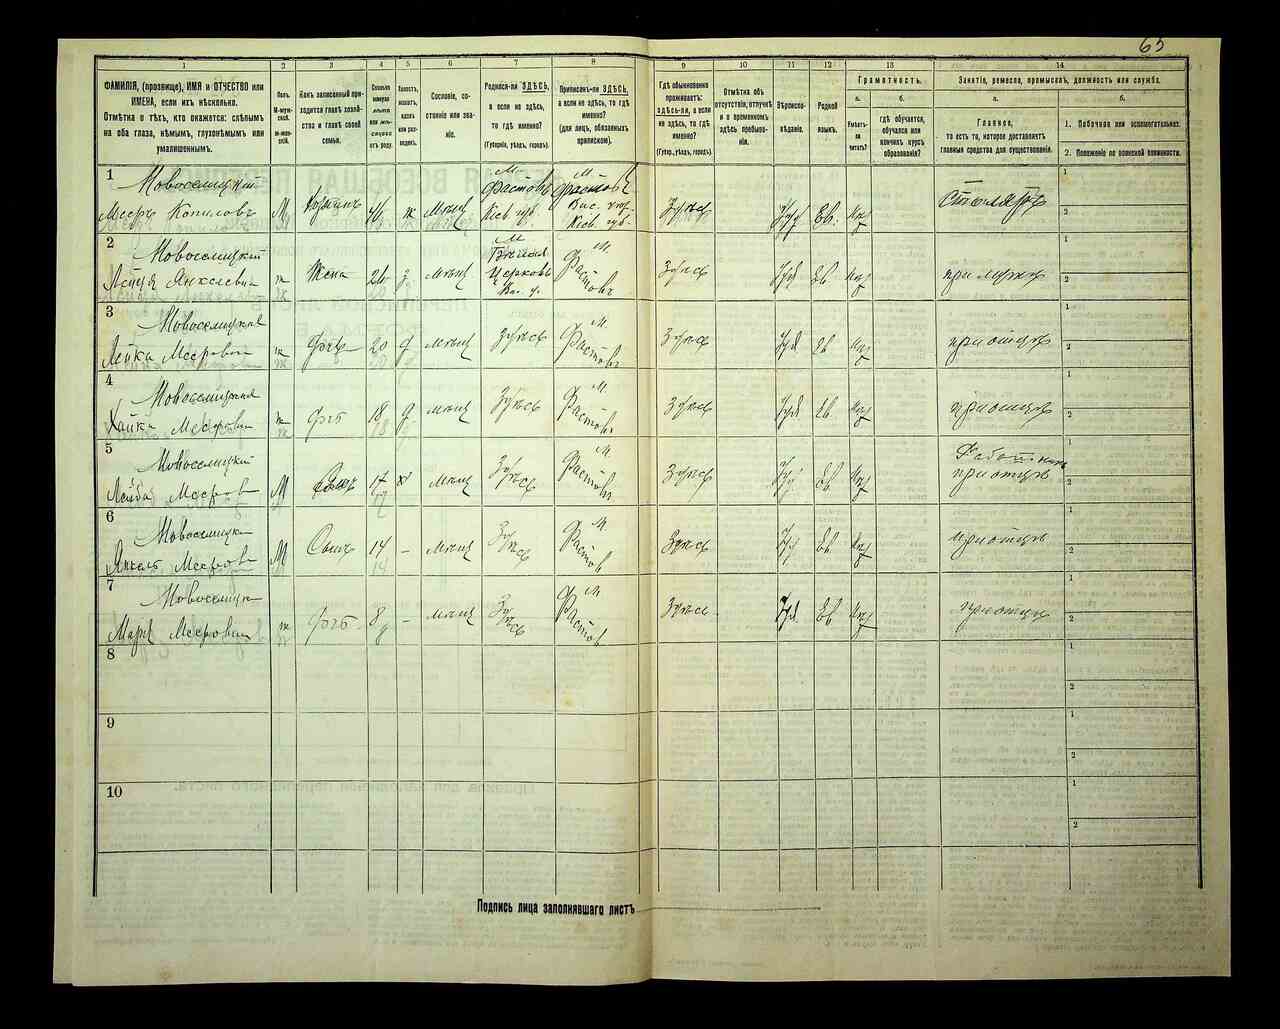 65
1
2
3
4
5
6
7
8
9
10
11
12
13
14
ФАМИЛІЯ, (прозвище), ИМЯ и ОТЧЕСТВО или
ИМЕНА, если ихъ нѣсколько.
Отмѣтка о тѣхъ, кто окажется: слѣпымъ
на оба глаза, нѣмымъ, глухонѣмымъ или
умалишеннымъ.
Полъ.
М-муж-
ской.
Ж-жен-
скій.
Какъ записанный при-
ходится главѣ хозяй-
ства и главѣ своей
семьи.
Сколько
минуло
лѣтъ
или мѣ-
сяцевъ
отъ роду.
Холостъ,
женатъ,
вдовъ
или раз-
веденъ.
Сословіе, со-
стояніе или зва-
ніе.
Родился-ли ЗДѢСЬ,
а если не здѣсь,
то гдѣ именно?
(Губернія, уѣздъ, городъ).
Приписанъ-ли ЗДѢСЬ,
а если не здѣсь, то гдѣ
именно?
(для лицъ, обязанныхъ
припискою).
Гдѣ обыкновенно
проживаетъ:
здѣсь-ли, а если
не здѣсь, то гдѣ
именно?
(Губерн., уѣздъ, городъ).
Отмѣтка объ
отсутствіи, отлучкѣ
и о временномъ
здѣсь пребыва-
ніи.
Вѣроиспо-
вѣданіе.
Родной
языкъ.
Грамотность.
а.
б.
Умѣетъ-
ли
читать?
гдѣ обучается,
обучался или
кончилъ курсъ
образованія?
Занятіе, ремесло, промыселъ, должность или служба.
а.
б.
Главное,
то есть то, которое доставляетъ
главныя средства для существованія.
1. Побочное или вспомогательное.
2. Положеніе по воинской повинности.
1
Новоселицкий
Мееръ Копиловъ
М
46
ж
М.
Фастовъ
Кіев. губ.
М.
Фастовъ
Вас. у.
Кіев. губ.
Здѣсь
Іуд
Ев.
Столяръ
1
2
2
Новоселицкій
Лейця Янкелевна
ж
Жена
М.
Бѣлая
Церковь
Вас. у.
М.
Фастовъ
Здѣсь
Іуд
Ев
при мужѣ
1
2
3
Новоселицкая
Лейка Мееровна
ж
Дочь
20
д
Здѣсь
М.
Фастовъ
Здѣсь
Іуд
Ев
при отцѣ
1
2
4
Новоселицкая
Хайка Мееровна
ж
18
д
Здѣсь
М.
Фастовъ
Здѣсь
Іуд
Ев
при отцѣ
1
2
5
Новоселицкий
Лейба Мееров
М
Сынъ
17
х
Здѣсь
М.
Фастовъ
Здѣсь
Іуд
Ев
при отцѣ
1
2
6
Новоселицки
Янкель Мееровъ
М
Сынъ
14
–
Здѣсь
М.
Фастов
Здѣсь
Іуд
Ев
при отцѣ
1
2
7
Новоселицк
Мееровна
ж
8
–
Здѣсь
М.
Фастов
Здѣсь
Іуд
Ев
при отцѣ
1
2
8
1
2
9
1
2
10
1
2
Подпись лица заполнявшаго листъ